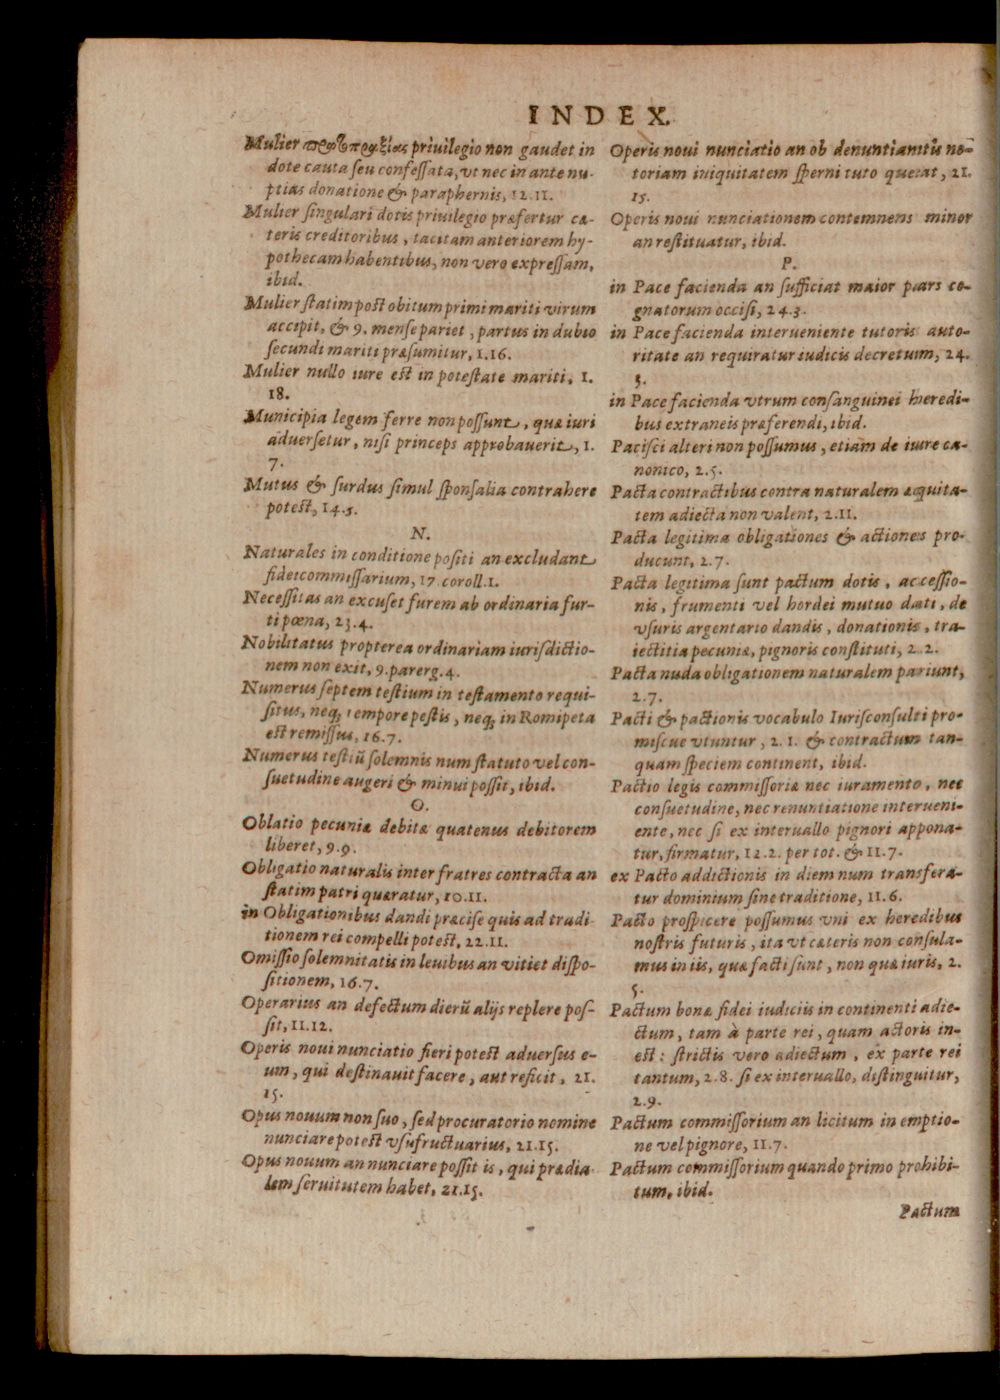 INDEX.
Mulier privilegio non gaudet in
dote cauta seu confessata, vt nec in ante nu-
ptias donatione & paraphernis, 12.11.
Mulier singulari dotis priuilegio præfertur cæ-
teris creditoribus, tacitam anteriorem hy-
pothecam habentibus, non vero expressam,
ibid.
Mulier statim post obitum primi mariti virum
accipit, & 9. mense pariet, partus in dubio
secundi mariti præsumitur, 1.16.
Mulier nullo iure est in potestate mariti, 1.
18.
Municipia legem ferre non possunt, quæ iuri
aduersetur, nisi princeps approbauerit, 1.
7.
Mutus & surdus simul sponsalia contrahere
potest, 14.5.
N.
Naturales in conditione positi an excludant
fideicommissarium, 17. coroll.1.
Necessitas an excuset furem ab ordinaria fur-
ti pœna, 23.4.
Nobilitatus propterea ordinariam iurisdictio-
nem non exit, 9. parerg.4.
Numerus septem testium in testamento requi-
situs, neq; tempore pestis, neq; in Romipeta
est remissus, 16.7.
Numerus testiũ solemnis num statuto vel con-
suetudine augeri & minui possit, ibid.
O.
Oblatio pecuniæ debitæ quatenus debitorem
liberet, 9.9.
Obligatio naturalis inter fratres contracta an
statim patri quæratur, 10.11.
in Obligationibus dandi præcise quis ad tradi-
tionem rei compelli potest, 22.11.
Omissio solemnitatis in leuibus an vitiet dispo-
sitionem, 16.7.
Operarius an defectum dierũ alijs replere pos-
sit, 11.12.
Operis noui nunciatio fieri potest aduersus e-
um, qui destinauit facere, aut reficit, 21.
15.
Opus nouum non suo, sed procuratorio nomine
nunciare potest vsufructuarius, 21.15.
Opus nouum an nunciare possit is, qui prædia-
lem seruitutem habet, 21.15.
Operis noui nunciatio an ob denuntiantiũ no-
toriam iniquitatem sperni tuto queat, 21.
15.
Operis noui nunciationem contemnens minor
an restituatur, ibid.
P.
in Pace facienda an sufficiat maior pars co-
gnatorum occisi, 24.3.
in Pace facienda interueniente tutoris auto-
ritate an requiratur iudicis decretum, 24.
3.
in Pace facienda vtrum consanguinei heredi-
bus extraneis præferendi, ibid.
Pacisci alteri non possumus, etiam de iure ca-
nonico, 2.5.
Pacta contractibus contra naturalem æquita-
tem adiecta non valent, 2.11.
Pacta legitima obligationes & actiones pro-
ducunt, 2.7.
Pacta legitima sunt pactum dotis, accessio-
nis, frumenti vel hordei mutuo dati, de
vsuris argentario dandis, donationis, tra-
iectitia pecuniæ, pignoris constituti, 2.2.
Pacta nuda obligationem naturalem pariunt,
2.7.
Pacti & pactionis vocabulo Iurisconsulti pro-
miscue vtuntur, 2.1. & contractum tan-
quam speciem continent, ibid.
Pactio legis commissoriæ nec iuramento, nec
consuetudine, nec renuntiatione interueni-
ente, nec si ex interuallo pignori appona-
tur, firmatur, 12.2. per tot. & 11.7.
ex Pacto addictionis in diem num transfera-
tur dominium sine traditione, 11.6.
Pacto prospicere possumus vni ex heredibus
nostris futuris, ita vt cæteris non consula-
mus in iis, quæ facti sunt, non quæ iuris, 2.
5.
Pactum bonæ fidei iudiciis in continenti adie-
ctum, tam à parte rei, quam actoris in-
est: strictis vero adiectum, ex parte rei
tantum, 2.8. si ex interuallo, distinguitur,
2.9.
Pactum commissorium an licitum in emptio-
ne vel pignore, 11.7.
Pactum commissorium quando primo prohibi-
tum, ibid.
Pactum